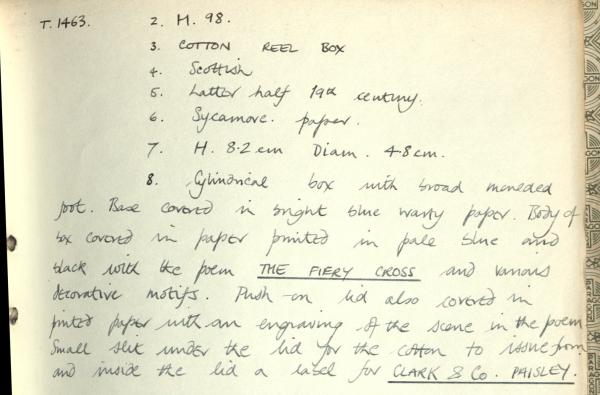 T. 1463. 2. H. 98.
3. COTTON REEL BOX
4. Scottish
5. Latter half 19th century.
6. Sycamore. paper.
7. H. 8.2 cm Diam. 4.8 cm.
8. Cylindrical box with broad
foot. Base covered in bright blue waxy paper. Body of
box covered in paper printed in pale blue and
black with the poem THE FIERY CROSS and various
decorative motifs. Push-on lid also covered in
printed paper with an engraving of the scene in the poem
Small slit under the lid for the cotton to issue from
and inside the lid a label for CLARK & Co. PAISLEY.